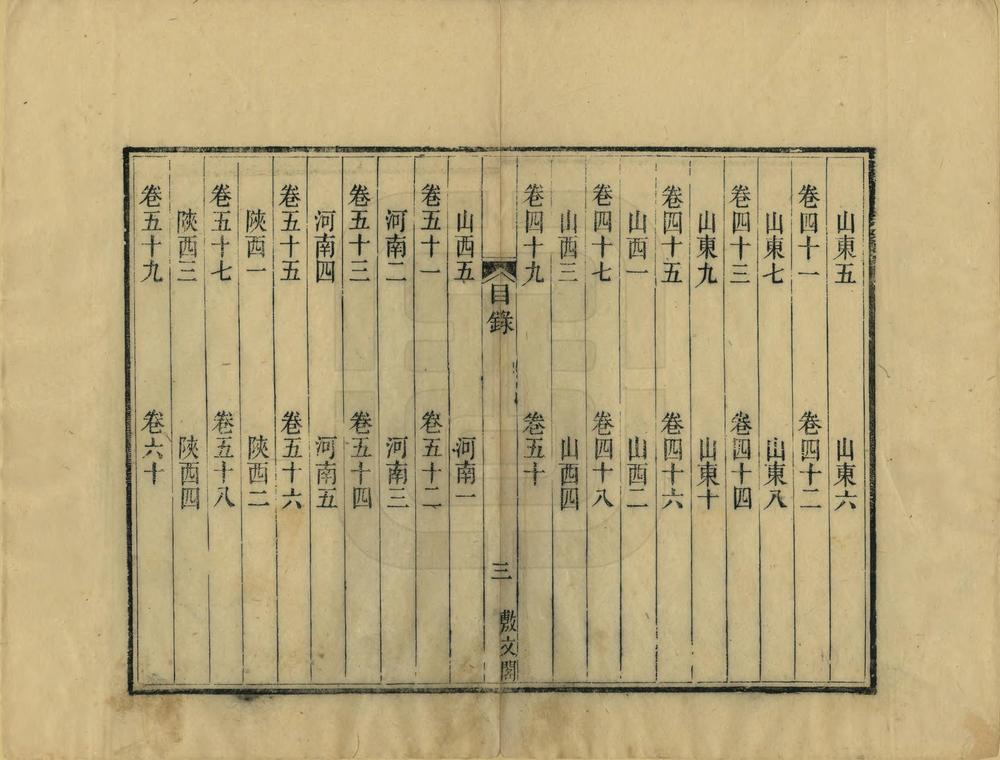 山東五　山東六
卷四十一　卷四十二
山東七　山東八
卷四十三　卷四十四
山東九　山東十
卷四十五　卷四十六
山西一　山西二
卷四十七　卷四十八
山西三　山西四
卷四十九　卷五十
目錄　三　敷文閣
山西五　河南一
卷五十一　卷五十二
河南二　河南三
卷五十三　卷五十四
河南四　河南五
卷五十五　卷五十六
陝西一　陝西二
卷五十七　卷五十八
陝西三　陝西四
卷五十九　卷六十